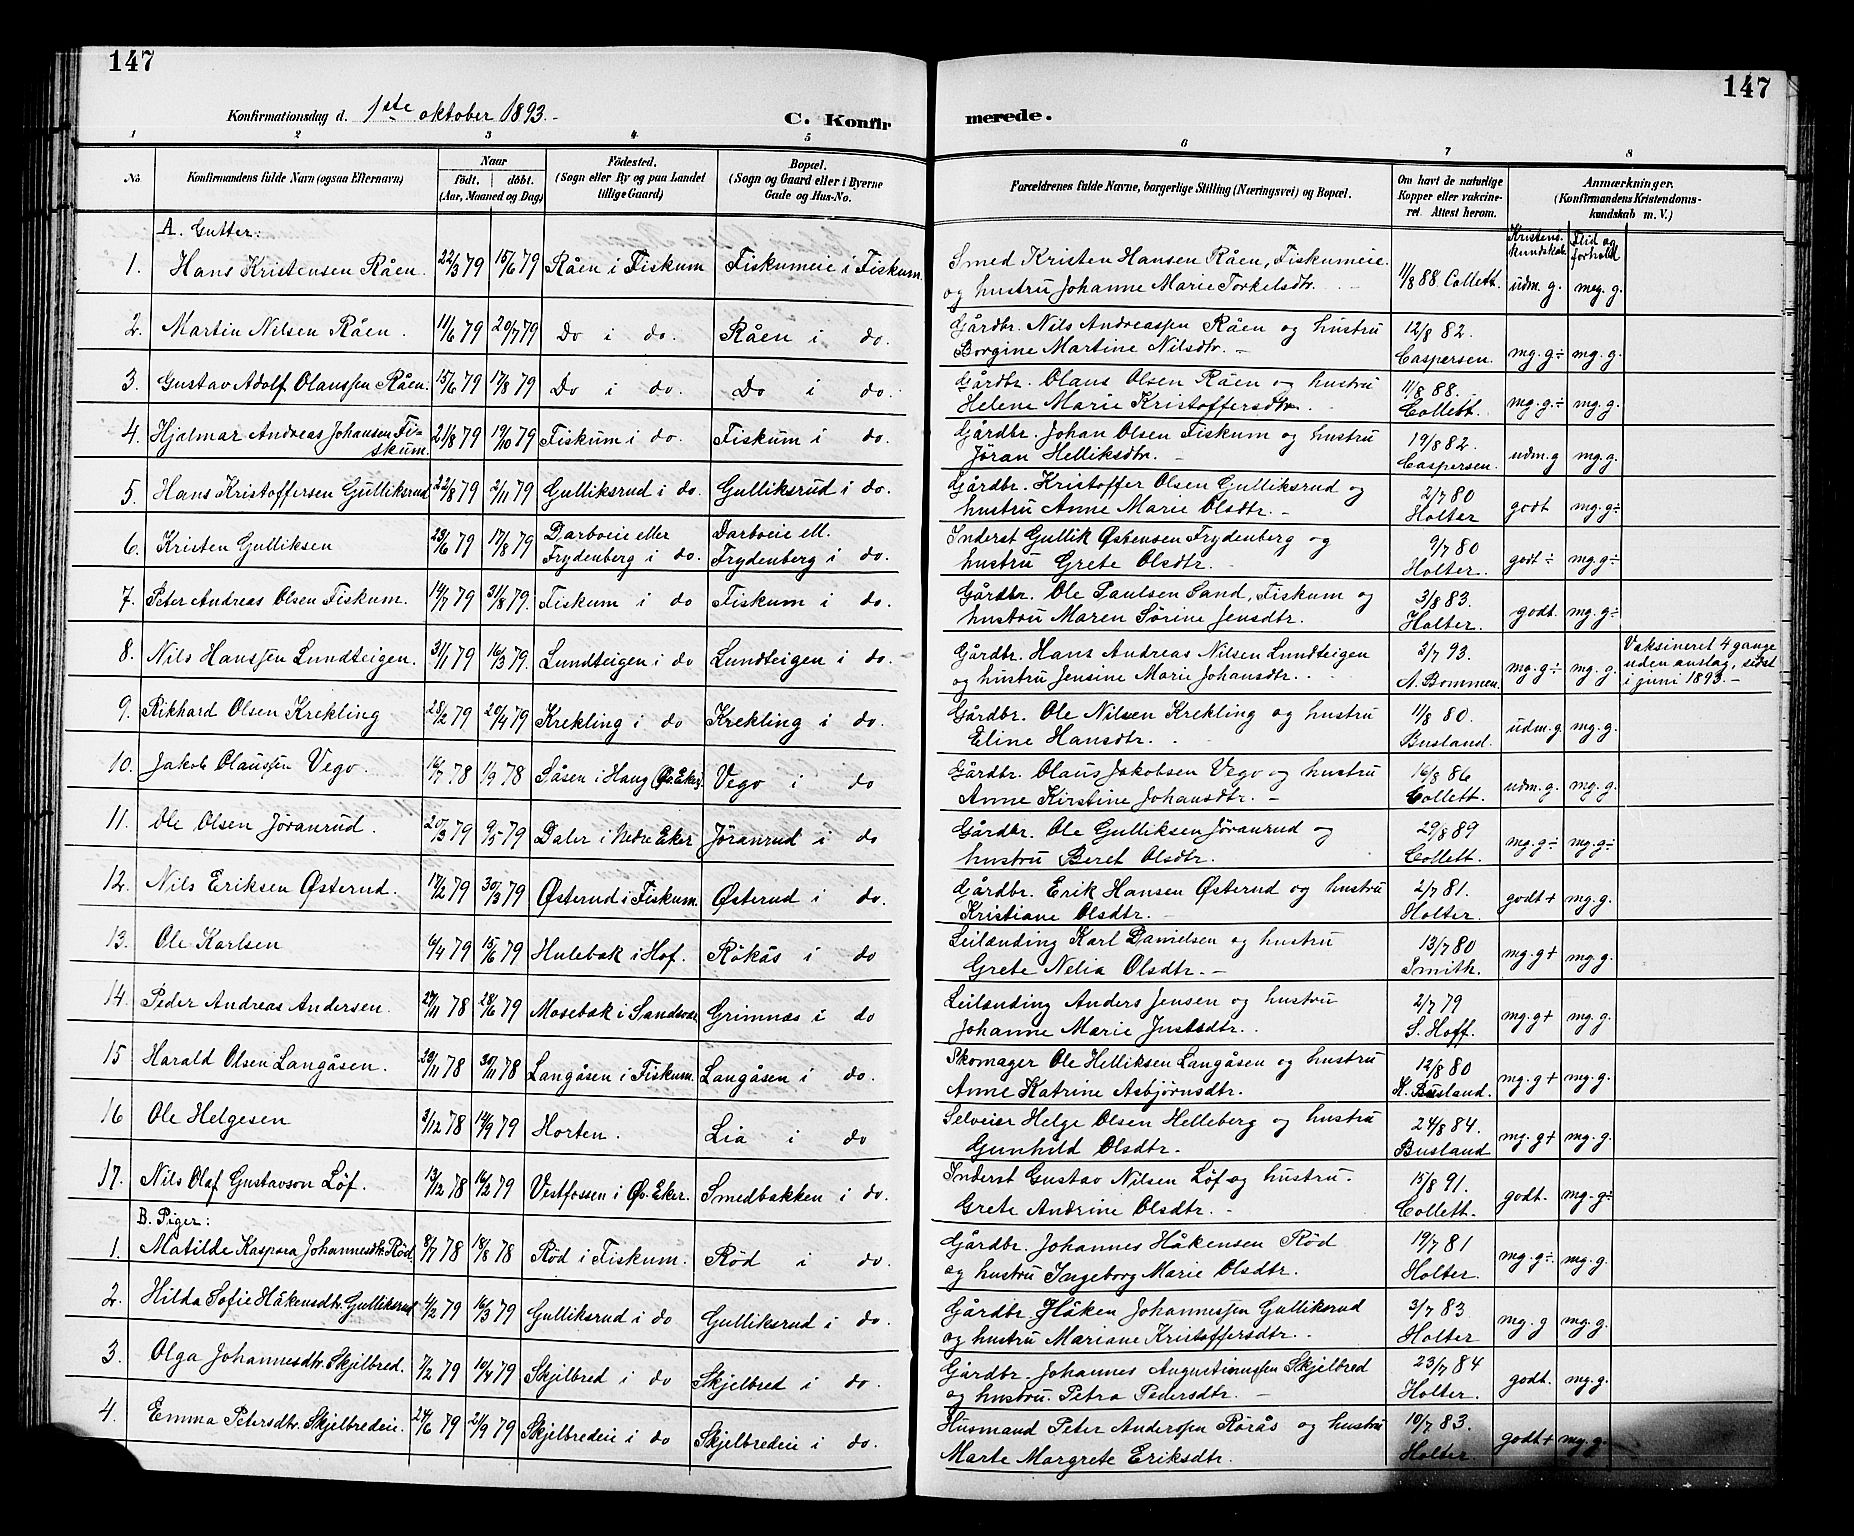 147
147
Konfirmationsdag d. 1ste oktober 1893.
C. Konfirmerede.
1 2 3 4 5 6 7 8
No. Konfirmandens fulde Navn (ogsaa Efternavn) Naar født. døbt. (Aar, Maaned og Dag) Fødested. (Sogn eller By og paa Landet tillige Gaard) Bopæl. (Sogn og Gaard eller i Byerne Gade og Hus-No. Forældrenes fulde Navne, borgerlige Stilling (Næringsvei) og Bopæl. Om havt de naturlige Kopper eller vakcineret. Attest herom. Anmærkninger. (Konfirmandens Kristendomskundskab m. V.)
Kristens. kundskab Flid og forhold
A. Gutter:
1. Hans Kristensen Råen. 22/3 79 15/6 79 Råen i Fiskum Fiskumeie i Fiskum. Smed Kristen Hansen Råen, Fiskumeie og hustru Johanne Marie Torkelsdtr. 11/8 88 Collett. udm. g. meg. g.
2. Martin Nilsen Råen. 11/6 79 20/7 79 Do i do. Råen i do. Gårdbr. Nils Andreassen Råen og hustru Borgine Martine Nilsdtr. 12/8 82. Caspersen. mg. g÷ mg. g.
3. Gustav Adolf Olaussen Råen. 15/6 79 17/8 79 Do i do. Do i do. Gårdbr. Olaus Olsen Råen og hustru Helene Marie Kristoffersdtr. 11/8 88. Collett. mg. g.÷ mg. g.
4. Hjalmar Andreas Johansen Fiskum. 21/8 79 19/10 79 Fiskum i do. Fiskum i do. Gårdbr. Johan Olsen Fiskum og hustru Jöran Helliksdtr. 19/8 82. Caspersen. udm. g mg. g.
5. Hans Kristoffersen Gulliksrud 22/8 79 2/11 79 Gulliksrud i do. Gulliksrud i do. Gårdbr. Kristoffer Olsen Gulliksrud og hustru Anne Marie Olsdtr. 2/7 80 Holter godt mg. g÷
6. Kristen Gulliksen 23/6 79 17/8 79 Darboeie eller Frydenberg i do. Darboeie ell. Frydenberg i do. Inderst Gullik Østensen Frydenberg og hustru Grete Olsdtr. 9/7 80 Holter. godt÷ mg. g÷
7. Peter Andreas Olsen Fiskum. 14/7 79 31/8 79. Fiskum i do Fiskum i do. Gårdbr. Ole Paulsen Sand, Fiskum og hustru Maren Sörine Jensdtr. 3/8 83. Holter. godt. mg. g÷
8. Nils Hanssen Lundteigen. 31/1 79 16/3 79. Lundteigen i do Lundteigen i do. Gårdbr. Hans Andreas Nilsen Lundteigen og hustru Jensine Marie Johansdtr. 2/7 93. A. Bommen. mg. g÷ mg. g. Vaksineret 4 gange uden anslag, sidst i juni 1893.
9. Rikhard Olsen Krekling 28/2 79 20/4 79 Krekling i do Krekling i do. Gårdbr. Ole Nilsen Krekling og hustru Eline Hansdtr. 11/8 80. Busland. udm. g. mg. g.
10. Jakob Olaussen Vego. 16/7 78 1/9 78 Såsen i Haug (Øv. Eker) Vego i do Gårdbr. Olaus Jakobsen Vego og hustru Anne Kirstine Johansdtr. 16/8 86 Collett. udm. g. mg. g.
11. Ole Olsen Jöranrud. 20/3 79 9/5 79 Daler i Nedre Eker Jöranrud i do Gårdbr. Ole Gulliksen Jöranrud og hustru Beret Olsdtr. 29/8 89 Collett. mg. g÷ mg. g÷
12. Nils Eriksen Østerud. 17/2 79 30/3 79 Østerud i Fiskum. Østerud i do. Gårdbr. Erik Hansen Østerud og hustru Kristiane Olsdtr. 2/7 81. Holter. godt+ mg. g.
13. Ole Karlsen 6/4 79 15/6 79 Hulebak i Hof. Rökås i do Leilænding Karl Danielsen og hustru Grete Nelia Olsdtr. 13/7 80 Smith. mg. g+ mg. g.
14. Peder Andreas Andersen. 27/11 78 28/6 79 Mosebak i Sandsvær Grimnæs i do Leilænding Anders Jensen og hustru Johanne Marie Justsdtr. 2/7 79 S. Hoff. mg. g+ mg. g.
15 Harald Olsen Langåsen. 29/11 78 30/11 78 Langåsen i Fiskum. Langåsen i do. Skomager Ole Helliksen Langåsen og hustru Anne Katrine Asbjørnsdtr. 12/8 80 K. Busland. mg. g+ mg. g.
16 Ole Helgesen 3/12 78 14/9 79 Horten. Lia i do Selveier Helge Olsen Helleberg og hustru Gunhild Olsdtr. 24/8 84. Busland mg. g+ mg. g.
17. Nils Olaf Gustavson Löf. 13/12 78 16/2 79 Vestfossen i Øv. Eker. Smedbakken i do. Inderst Gustav Nilsen Löf og hustru. Grete Andrine Olsdtr. 15/8 91. Collett. godt. mg. g÷
B. Piger:
1. Matilde Kaspara Johannesdtr. Röd. 8/7 78 18/8 78 Röd i Fiskum. Röd i do. Gårdbr. Johannes Håkensen Röd og hustru Ingeborg Marie Olsdtr. 19/7 81 Holter. mg. g÷ mg. g.
2. Hilda Sofie Håkensdtr. Gulliksrud 4/2 79 16/3 79 Gulliksrud i do Gulliksrud i do. Gårdbr Håken Johannessen Gulliksrud og hustru Mariane Kristoffersdtr. 3/7 83 Holter mg. g mg. g.
3. Olga Johannesdtr. Skjelbred. 7/2 79 10/4 79 Skjelbred i do Skjelbred i do. Gårdbr. Johannes Augustinussen Skjelbred og hustru. Petra Pedersdtr. 23/7 84 Holter. godt. mg. g.
4. Emma Petersdtr. Skjelbredeie. 24/6 79 21/9 79 Skjelbredeie i do Skjelbredeie i do. Husmand Peter Anderssen Rörås og hustru Marte Margrete Eriksdtr. 10/7 83. Holter. godt+ mg. g.